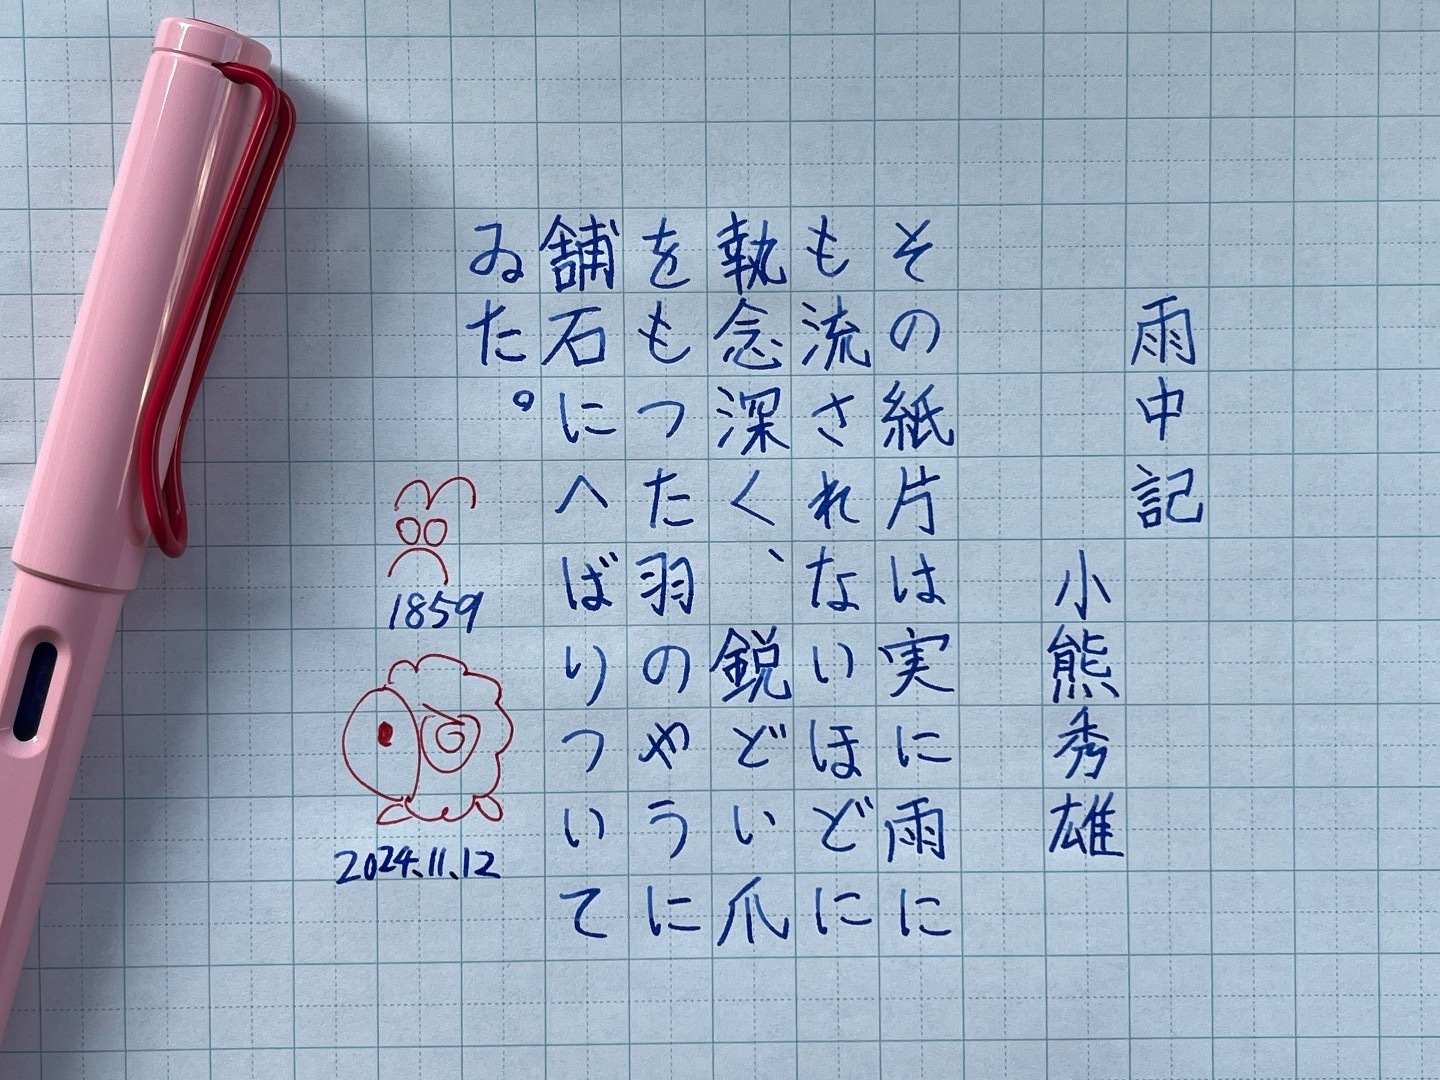 雨中記
小熊秀雄
その紙片は実に雨に
も流されないほどに
執念深く、鋭どい爪
をもつた羽のやうに
舗石にへばりついて
ゐた。
1859
2024.11.12